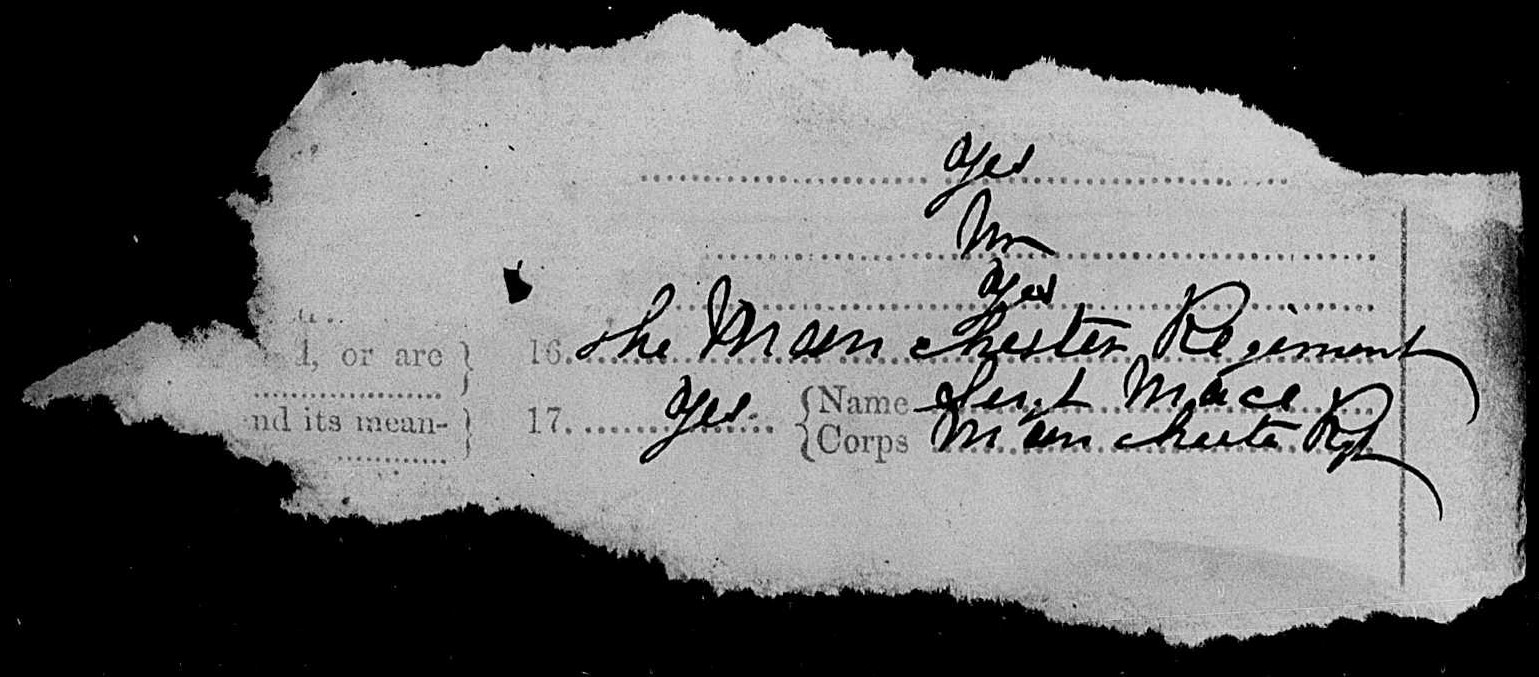 Yes
Yes
d, or are } 16. The Manchester Regiment
nd its mean- } 17. Yes. { Name Sergt Mace
Corps Manchester Rgt